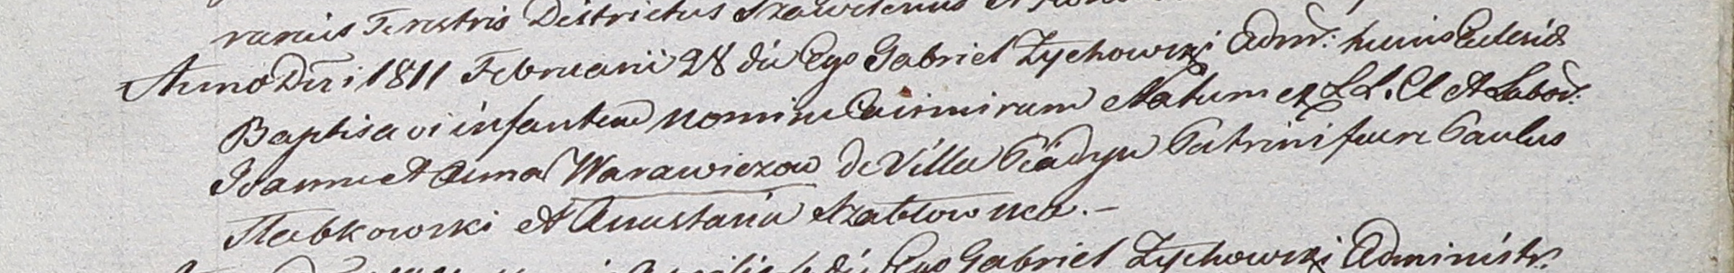 Terrestris Districtus
Anno Dni 1811 Februarii 28 die Ego Gabriel Zychowski Admr: huius Ecclesiæ
Baptisavi infantem nomine Casimirum Natum ex L L. Cl et Labor:
Joanne et Anna Warawiczow de Villa Patrini fuere Paulus
Slabkowski et Anastasia Szablowna. —
die Ego Gabriel Zychowski Administr: